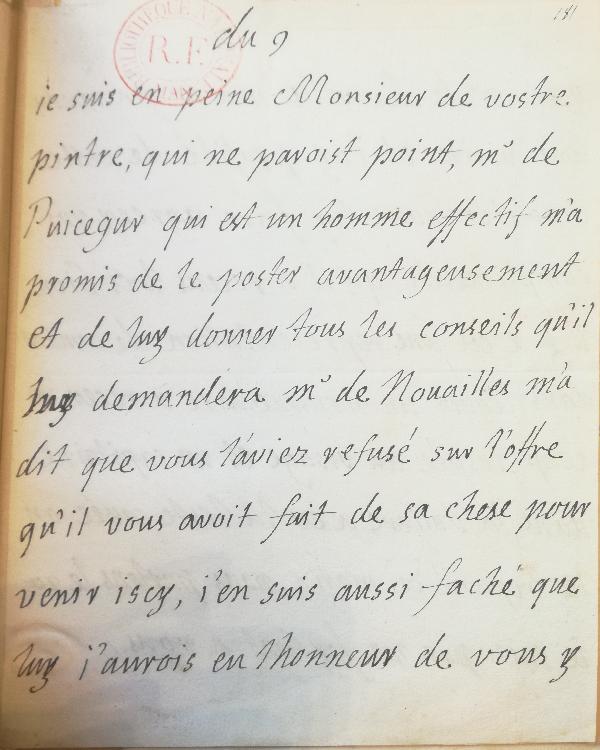 181
du 9
je suis en peine Monsieur de vostre
pintre, qui ne paroist point, mr de
Puicegur qui est un homme effectif m'a
promis de le poster avantageusement
et de luy donner tous les conseils qu'il
luy demandera mr de Nouailles m'a
dit que vous l'aviez refusé sur l'offre
qu'il vous avoit fait de sa chese pour
venir iscy, i'en suis aussi faché que
luy j'aurois eu lhonneur de vous y
R.F.